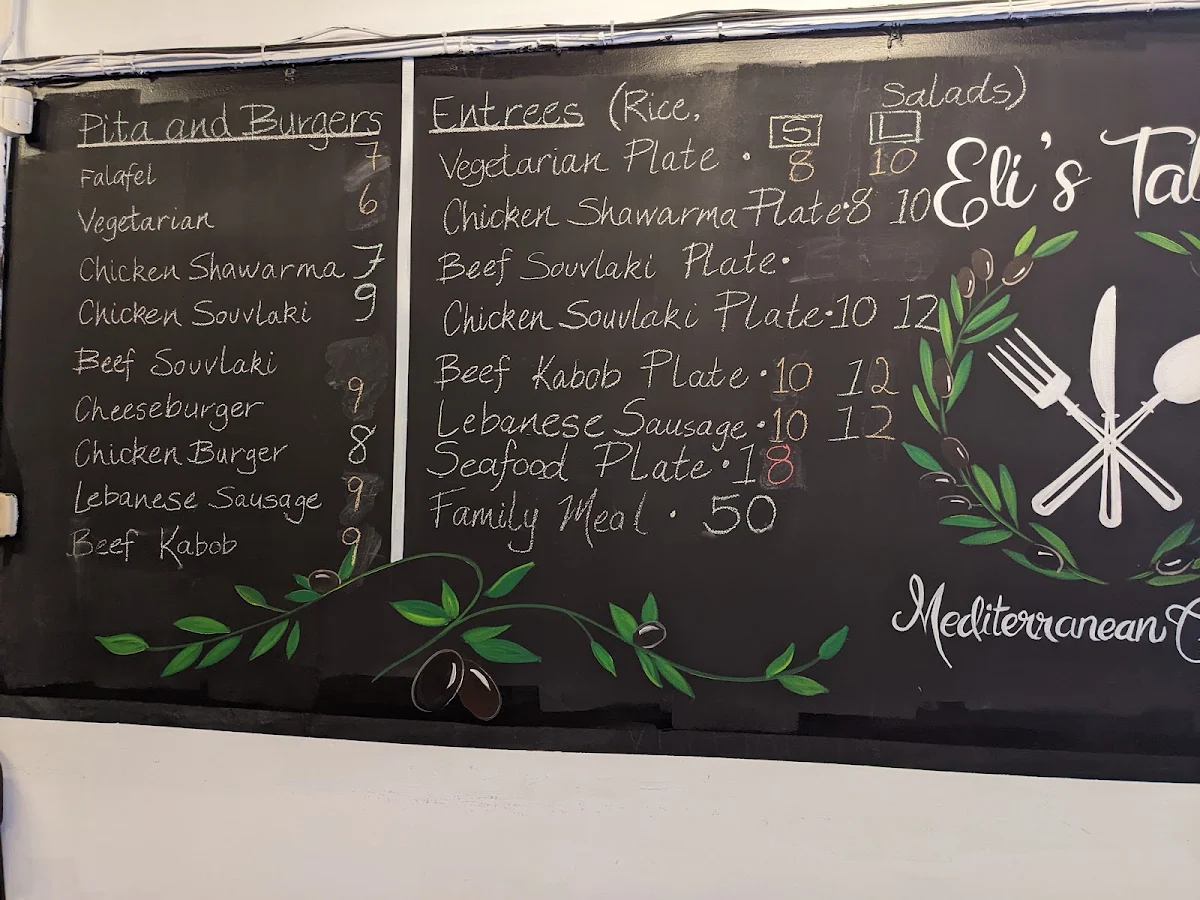 Pita and Burgers
Falafel 7
Vegetarian 6
Chicken Shawarma 7
Chicken Souvlaki 9
Beef Souvlaki
Cheeseburger 9
Chicken Burger 8
Lebanese Sausage 9
Beef Kabob 9
Entrees (Rice, Salads)
S L
Vegetarian Plate . 8 10
Chicken Shawarma Plate . 8 10
Beef Souvlaki Plate .
Chicken Souvlaki Plate . 10 12
Beef Kabob Plate . 10 12
Lebanese Sausage . 10 12
Seafood Plate . 18
Family Meal . 50
Eli's
Mediterranean